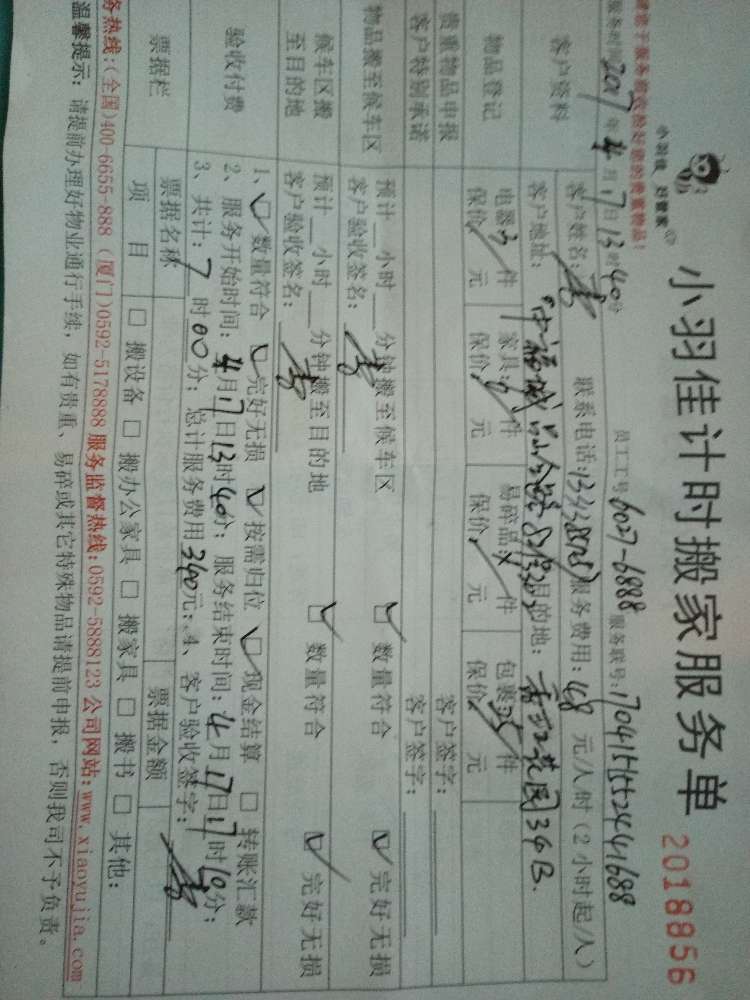 小羽佳 好管家
小羽佳计时搬家服务单
2018856
请您于服务前收拾好您的贵重物品!
员工工号:6027-6888 服务联号:1704151552441688
服务时间:2017年4月17日13时40分
客户资料
客户姓名: 联系电话: 服务费用:168元/人时(2小时起/人)
客户地址: 目的地:
物品登记
电器:3件 家具: 件 易碎品: 件 包裹:25件
保价 元 保价 元 保价 元 保价 元
贵重物品申报 客户签字:
客户特别承诺 客户签字:
物品搬至候车区
预计__小时__分钟搬至候车区 数量符合 完好无损
客户验收签名:
候车区搬至目的地
预计__小时__分钟搬至目的地 数量符合 完好无损
客户验收签名:
验收付费
1、 数量符合 完好无损 按需归位 现金结算 □ 转账汇款
2、服务开始时间:4月17日13时40分;服务结束时间:4月17日17时10分;
3、共计:7时00分;总计服务费用340元;4、客户验收签字:
票据栏
票据名称 票据金额
项 目 □ 搬设备 □ 搬办公家具 □ 搬家具 □ 搬书 □ 其他:
务热线:(全国)400-6655-888 (厦门)0592-5178888 服务监督热线:0592-5888123 公司网站:www.xiaoyujia.com
温馨提示:请提前办理好物业通行手续,如有贵重、易碎或其它特殊物品请提前申报,否则我司不予负责。